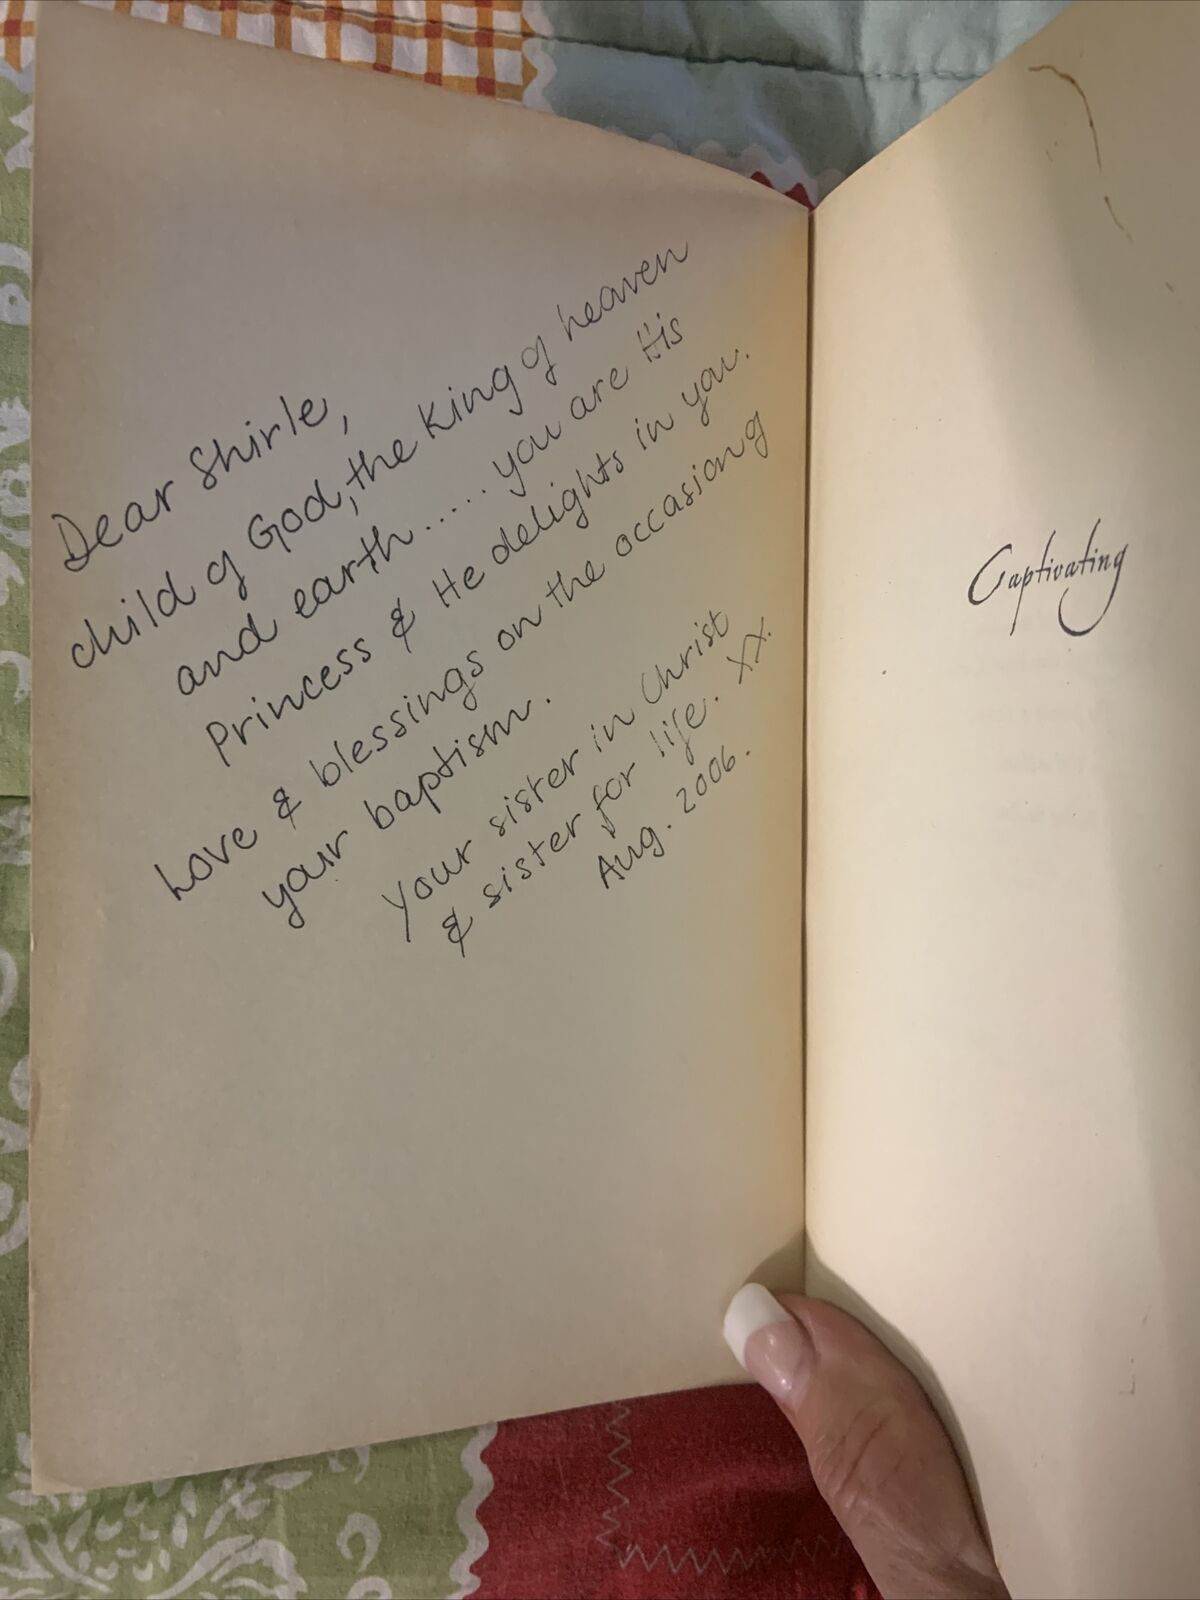 Dear Shirle,
child of God, the King of heaven
and earth..... you are His
Princess & He delights in you.
Love & blessings on the occasion of
your baptism.
Your sister in Christ
& sister for life. XX.
Aug. 2006.
Captivating